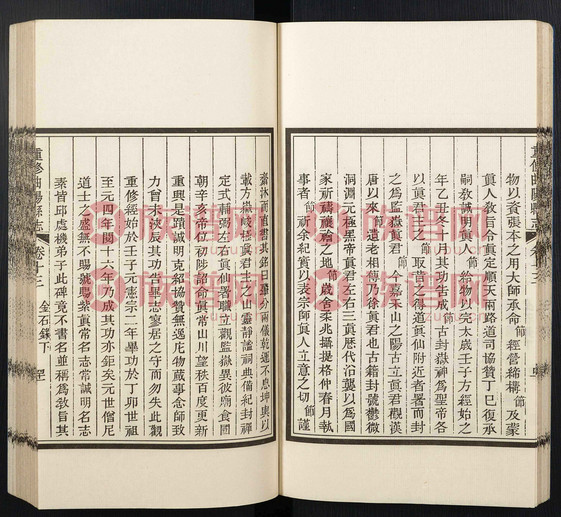 物以資張本之用大師承命節經營締構節及蒙
眞人敎旨令眞定順天兩路道司協贊丁巳復承
嗣敎誠明眞人節給物以完太歲壬子方經始之
年乙丑冬十月其功告成節古封嶽神爲聖帝各
以眞君主之節取昔之得道眞仙附近者署而封
之爲監嶽眞君節今嘉禾山之陽古立眞君觀漢
唐以來節遺老相傳乃徐眞君也古籍封號鬱微
洞淵元極黑帝眞君左右三眞歷代沿襲以爲國
家祈禱禳禬之地節歲舍柔兆攝提格仲春月執
事者節祈余紀實以表宗師眞人立意之切節謹
齋沐而直書其銘曰肇分兩儀乾運不息坤輿以
載方嶽峻極眞君主之山靈靜謐祠典備紀封禪
定式輔弼左右眞仙署職立觀監嶽異彼廟食國
朝辛亥帝位初陟詔命眞常山川望秩百度更新
重興是蹟誠明克紹協贊無遏庀物蕆事念師致
力曾未浹辰其功告畢志寥居之守而勿失此觀
重修經始於壬子元憲宗二年畢功於丁卯世祖
至元四年閱十六年乃成其功亦鉅矣元世僧尼
道士之盛無不賜號賜紫眞常名志常誠明名志
素皆邱處機弟子此碑竟不書名並稱爲敎旨其
重修曲陽縣志
卷十三
金石錄下